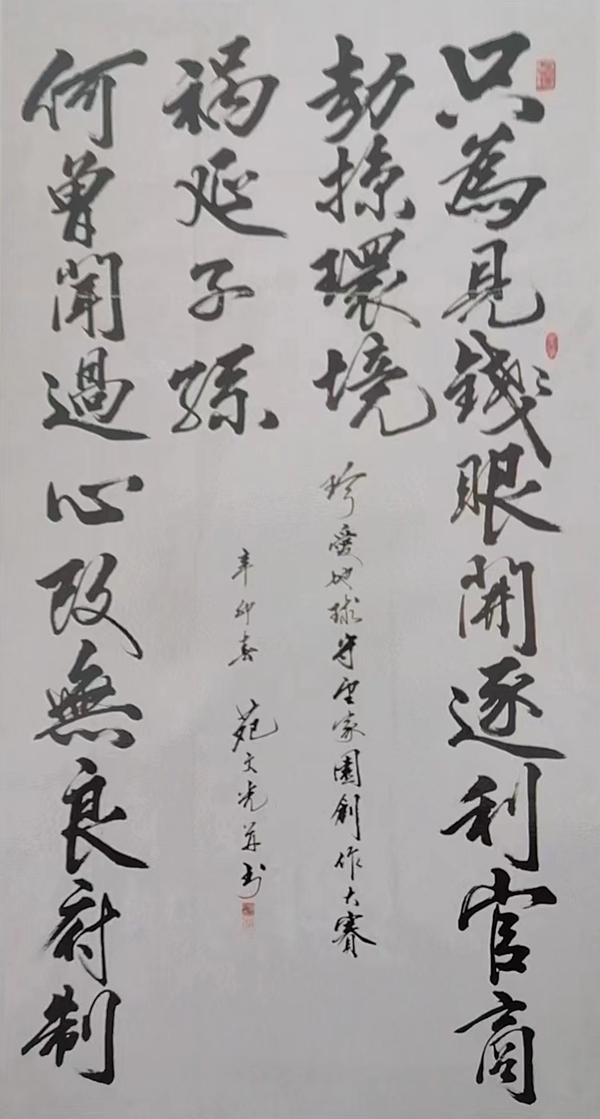 只為見錢眼開逐利官商
劫掠環境
何曾聞過心改無良府制
禍延子孫
珍愛地球守望家園創作大賽
辛卯春 苑文光并书